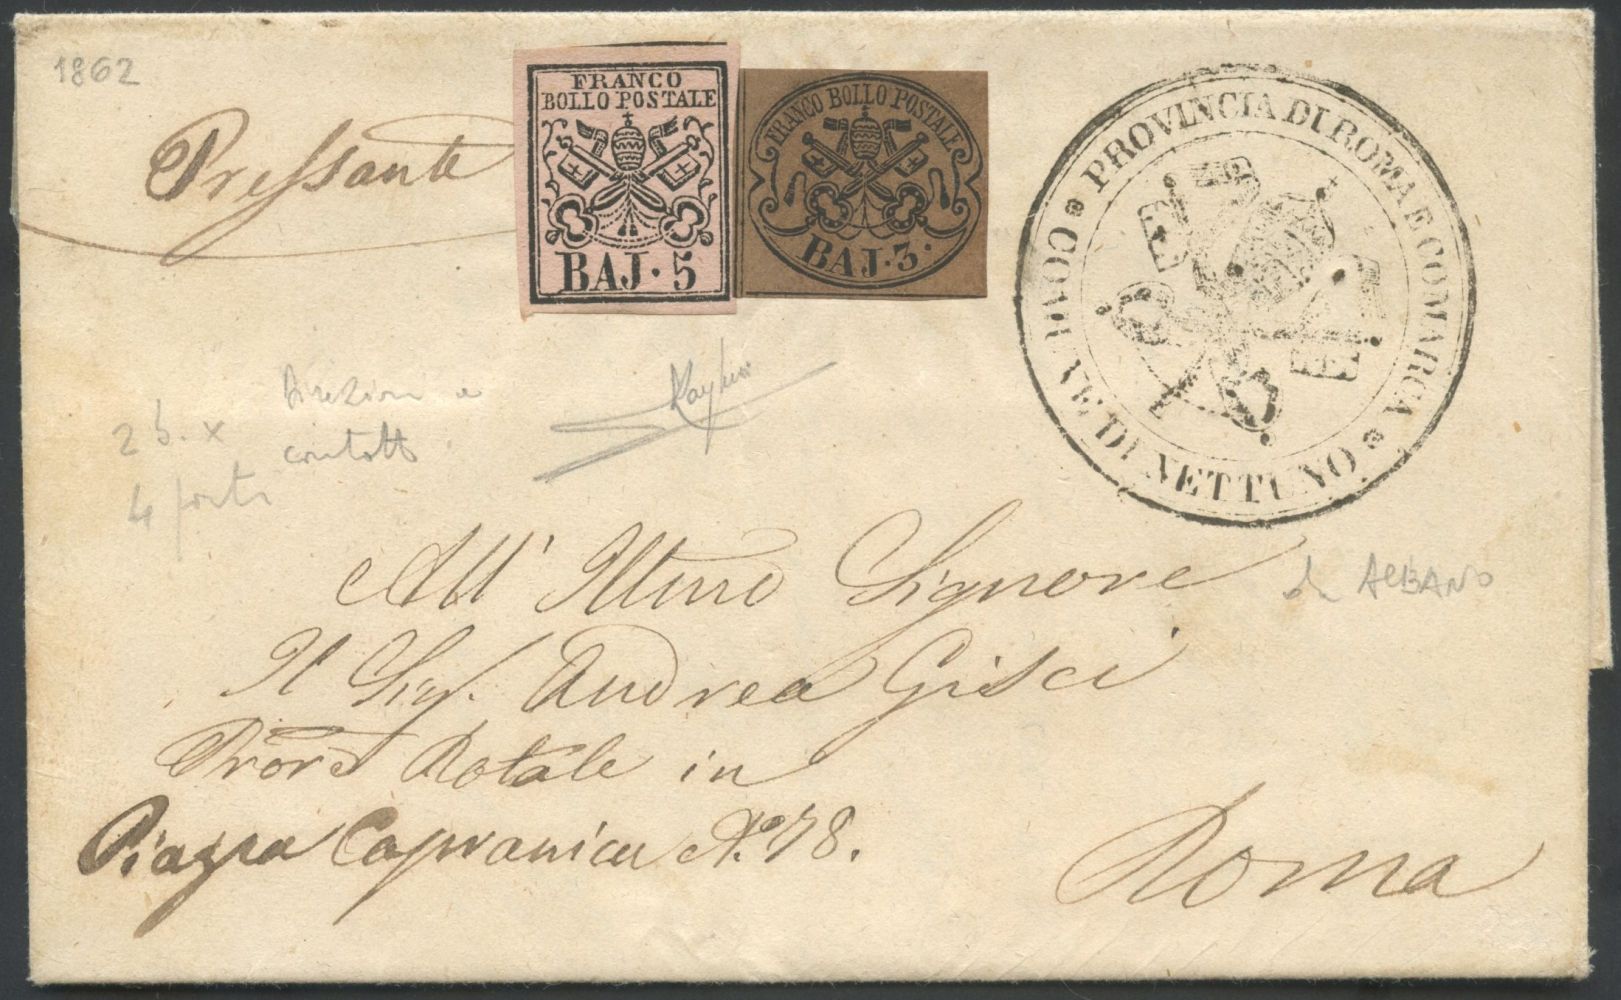 1862
Pressante
FRANCO
BOLLO POSTALE
BAJ · 5
FRANCO BOLLO POSTALE
BAJ · 3 ·
PROVINCIA DI ROMA E COMARCA
COMUNE DI NETTUNO
2 b. x
4 porti
Direzioni e
All' Illmo Signore
da ALBANO
Il Sig. Andrea Gisci
Rotale in
Piazza Capranica N.° 78.
Roma